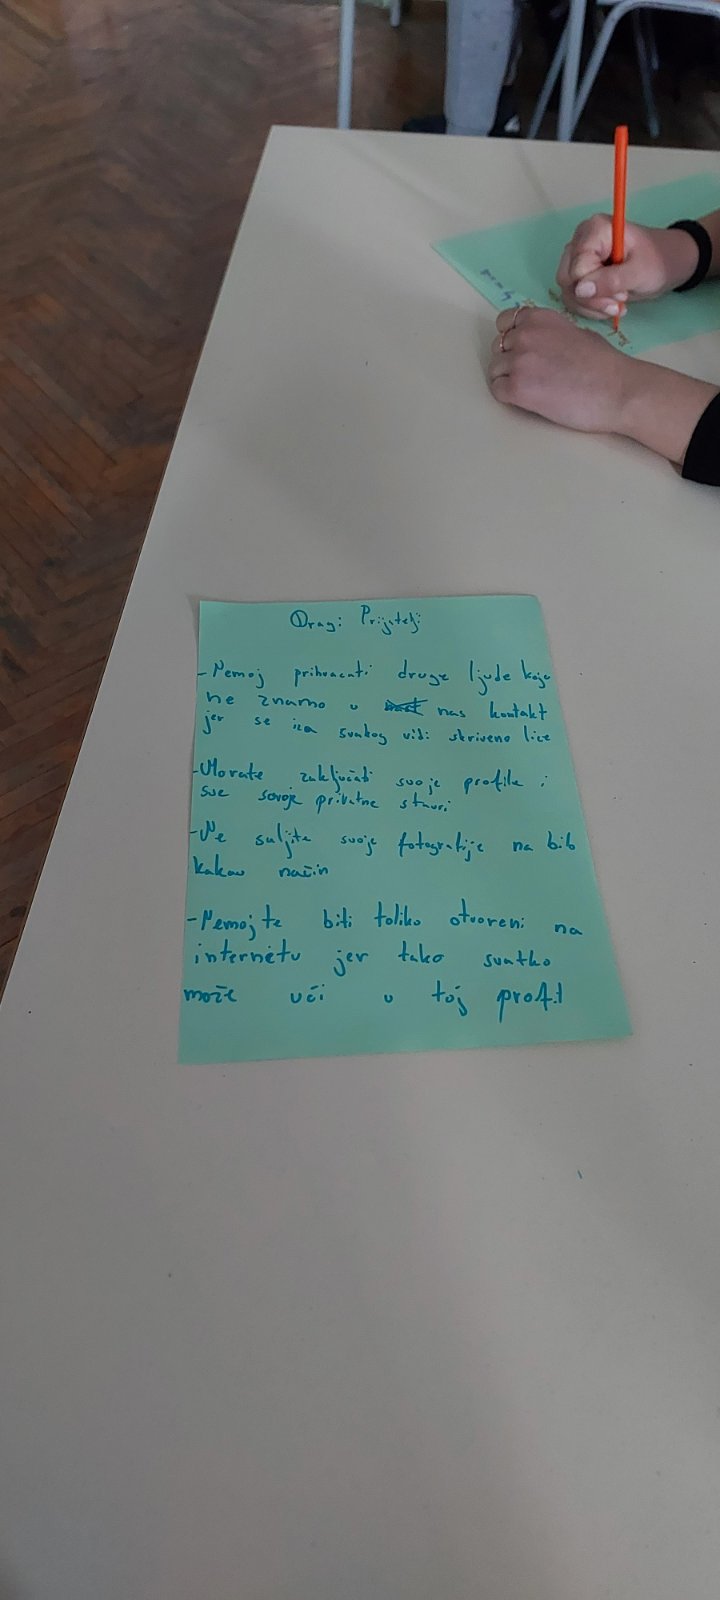 Dragi Prijatelji
-Nemoj prihvacati druge ljude koje
ne znamo u nas kontakt
jer se iza svakog vidi skriveno lice
-Morate zaključati svoje profile i
sve sovoje privatne stvari
-Ne saljite svoje fotografije na bib
kakav način
-Nemojte biti toliko otvoreni na
internetu jer tako svatko
može uči u toj profil